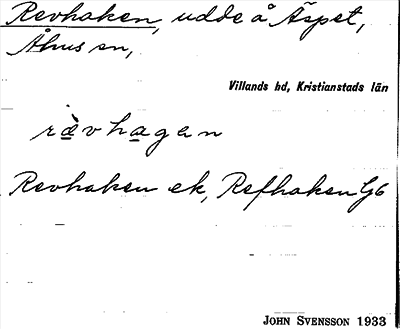 Revhaken, udde å Äspet,
Åhus sn,
Villands hd, Kristianstads län
rævhagen
Revhaken ek, Refhaken Gb
JOHN SVENSSON 1933